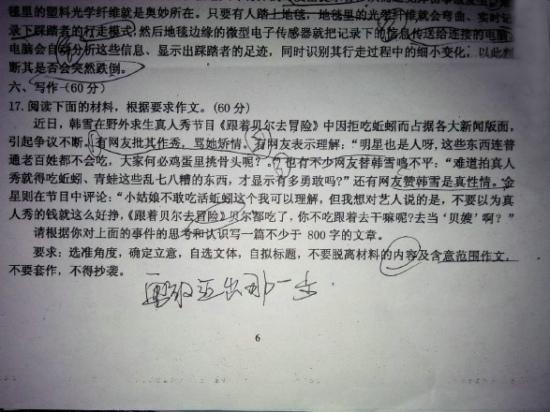 的塑料光学纤维就是奥妙所在。只要有人踏上地毯，地毯里的光学纤维就会弯曲、实时记
录下踩踏者的行走模式，然后地毯边缘的微型电子传感器就把记录下的信息传送给连接的电脑，
电脑会自动分析这些信息、显示出踩踏者的足迹，同时识别其行走过程中的细小变化，以此判
断其是否会突然跌倒。
六、写作（60分）
17. 阅读下面的材料，根据要求作文。（60分）
近日，韩雪在野外求生真人秀节目《跟着贝尔去冒险》中因拒吃蚯蚓而占据各大新闻版面，
引起争议不断。有网友批其作秀，骂她矫情；有网友表示理解：“明星也是人呀，这些东西连普
通老百姓都不会吃，大家何必鸡蛋里挑骨头呢？”也有不少网友替韩雪鸣不平：“难道拍真人
秀就得吃蚯蚓、青蛙这些乱七八糟的东西，才显示有多勇敢吗？”还有网友赞韩雪是真性情。金
星则在节目中评论：“小姑娘不敢吃活蚯蚓这个我可以理解，但我想对艺人说的是，不要以为真
人秀的钱就这么好挣，《跟着贝尔去冒险》贝尔都吃了，你不吃跟着去干嘛呢？去当‘贝嫂’啊？”
请根据你对上面的事件的思考和认识写一篇不少于 800 字的文章。
要求：选准角度，确定立意，自选文体，自拟标题，不要脱离材料的内容及含意范围作文，
不要套作，不得抄袭。
迈出那一步
6